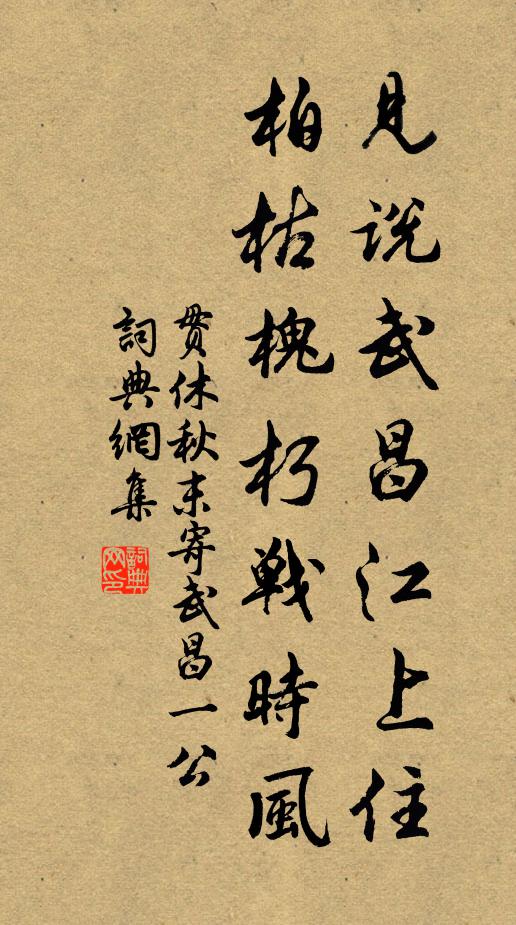 見說武昌江上住
柏枯槐朽戰時風
貫休秋末寄武昌一公
詞典網集
詞典
网印